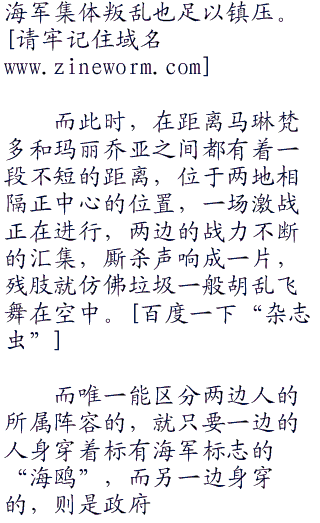 海军集体叛乱也足以镇压。
[请牢记住域名
www.zineworm.com]
而此时，在距离马琳梵
多和玛丽乔亚之间都有着一
段不短的距离，位于两地相
隔正中心的位置，一场激战
正在进行，两边的战力不断
的汇集，厮杀声响成一片，
残肢就仿佛垃圾一般胡乱飞
舞在空中。[百度一下“杂志
虫”]
而唯一能区分两边人的
所属阵容的，就只要一边的
人身穿着标有海军标志的
“海鸥”，而另一边身穿
的，则是政府